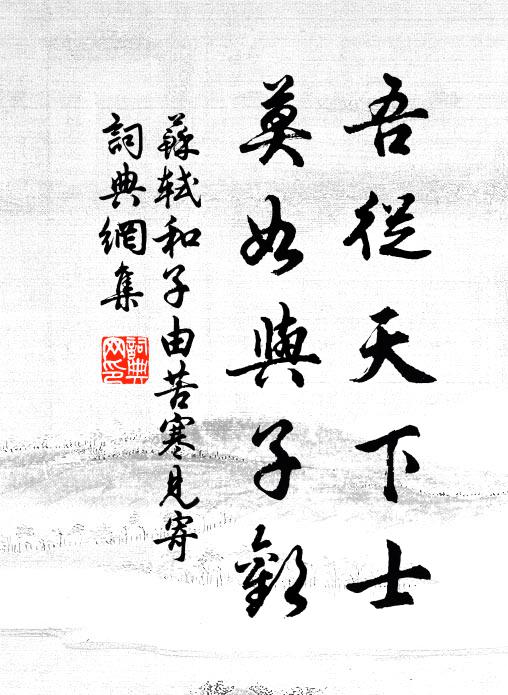 吾從天下士
莫如與子歡
蘇軾和子由苦寒見寄
詞典網集
詞典網印